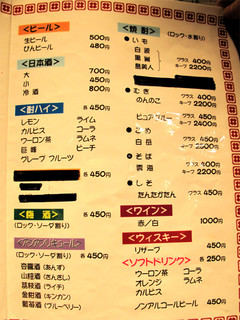 <ビール>
生ビール 500円
びんビール 480円
<日本酒>
大 700円
小 450円
冷酒 800円
<酎ハイ> 各450円
レモン ライム
カルピス コーラ
ウーロン茶 ラムネ
巨峰 ピーチ
グレープフルーツ
各450円
<梅酒> 各450円
(ロック・ソーダ割り)
各450円
(ロック・ソーダ割り)
杏露酒 (あんず)
山楂酒 (さんざし)
茘枝酒 (ライチ)
金杏酒 (キンカン)
藍苺酒 (ブルーベリー)
<焼酎> (ロック・水割り)
●いも
白波
黒霧 グラス 400円
島美人 キープ 2200円
●むぎ
のんのこ グラス 400円
キープ 2200円
ピュアブルー グラス 450円
●こめ
白岳 グラス 450円
キープ 2400円
●そば
雲海 グラス 450円
キープ 2400円
●しそ
たんたかたん グラス 450円
<ワイン>
赤/白 1000円
<ウィスキー>
リザーブ グラス 450円
<ソフトドリンク> 各250円
ウーロン茶 コーラ
オレンジ ラムネ
カルピス
ノンアルコールビール 450円